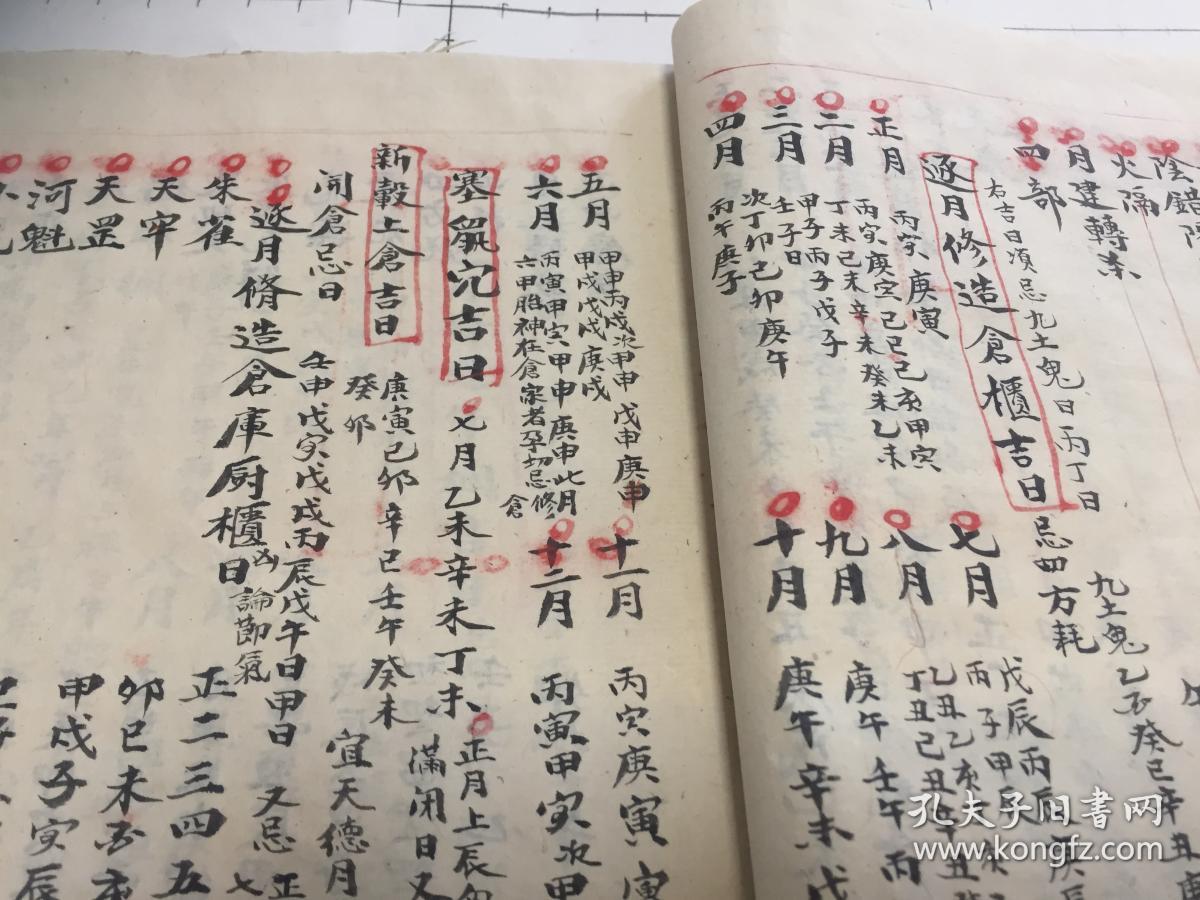 陰錯陽
火隔
月建轉杀
四部
忌四方耗
九土鬼乙丑癸巳辛丑庚
右吉日湏忌九土鬼日丙丁日
逐月修造倉櫃吉日
正月
丙寅庚寅
二月
丙寅庚寅己巳己亥甲寅
丁未己未辛未癸未乙未
三月
甲子丙子戊子
壬子日
四月
次丁卯己卯庚午
丙午庚子
七月
戊辰丙辰庚辰
八月
九月
庚午壬午丙
十月
庚午辛未戊
五月
甲申丙戌次甲申戊申庚申
甲戌戊戌庚戌
六月
丙寅甲寅甲申庚申此月
六甲胎神在倉家者孕切忌修倉
十一月
丙寅庚寅寅
十二月
丙寅甲寅次甲
塞鼠穴吉日
七月乙未辛未丁未
正月上辰
滿閉日又
新穀上倉吉日
庚寅己卯辛巳壬午癸未
癸卯
宜天德月
開倉忌日
壬申戊寅戊戌丙辰戊午日甲日
又忌正七
逐月脩造倉庫厨櫃凶日
論節氣
正二三四五
朱雀
卯巳未酉亥
天牢
甲戌子寅辰
天罡
河魁
孔夫子旧书网
www.kongfz.com